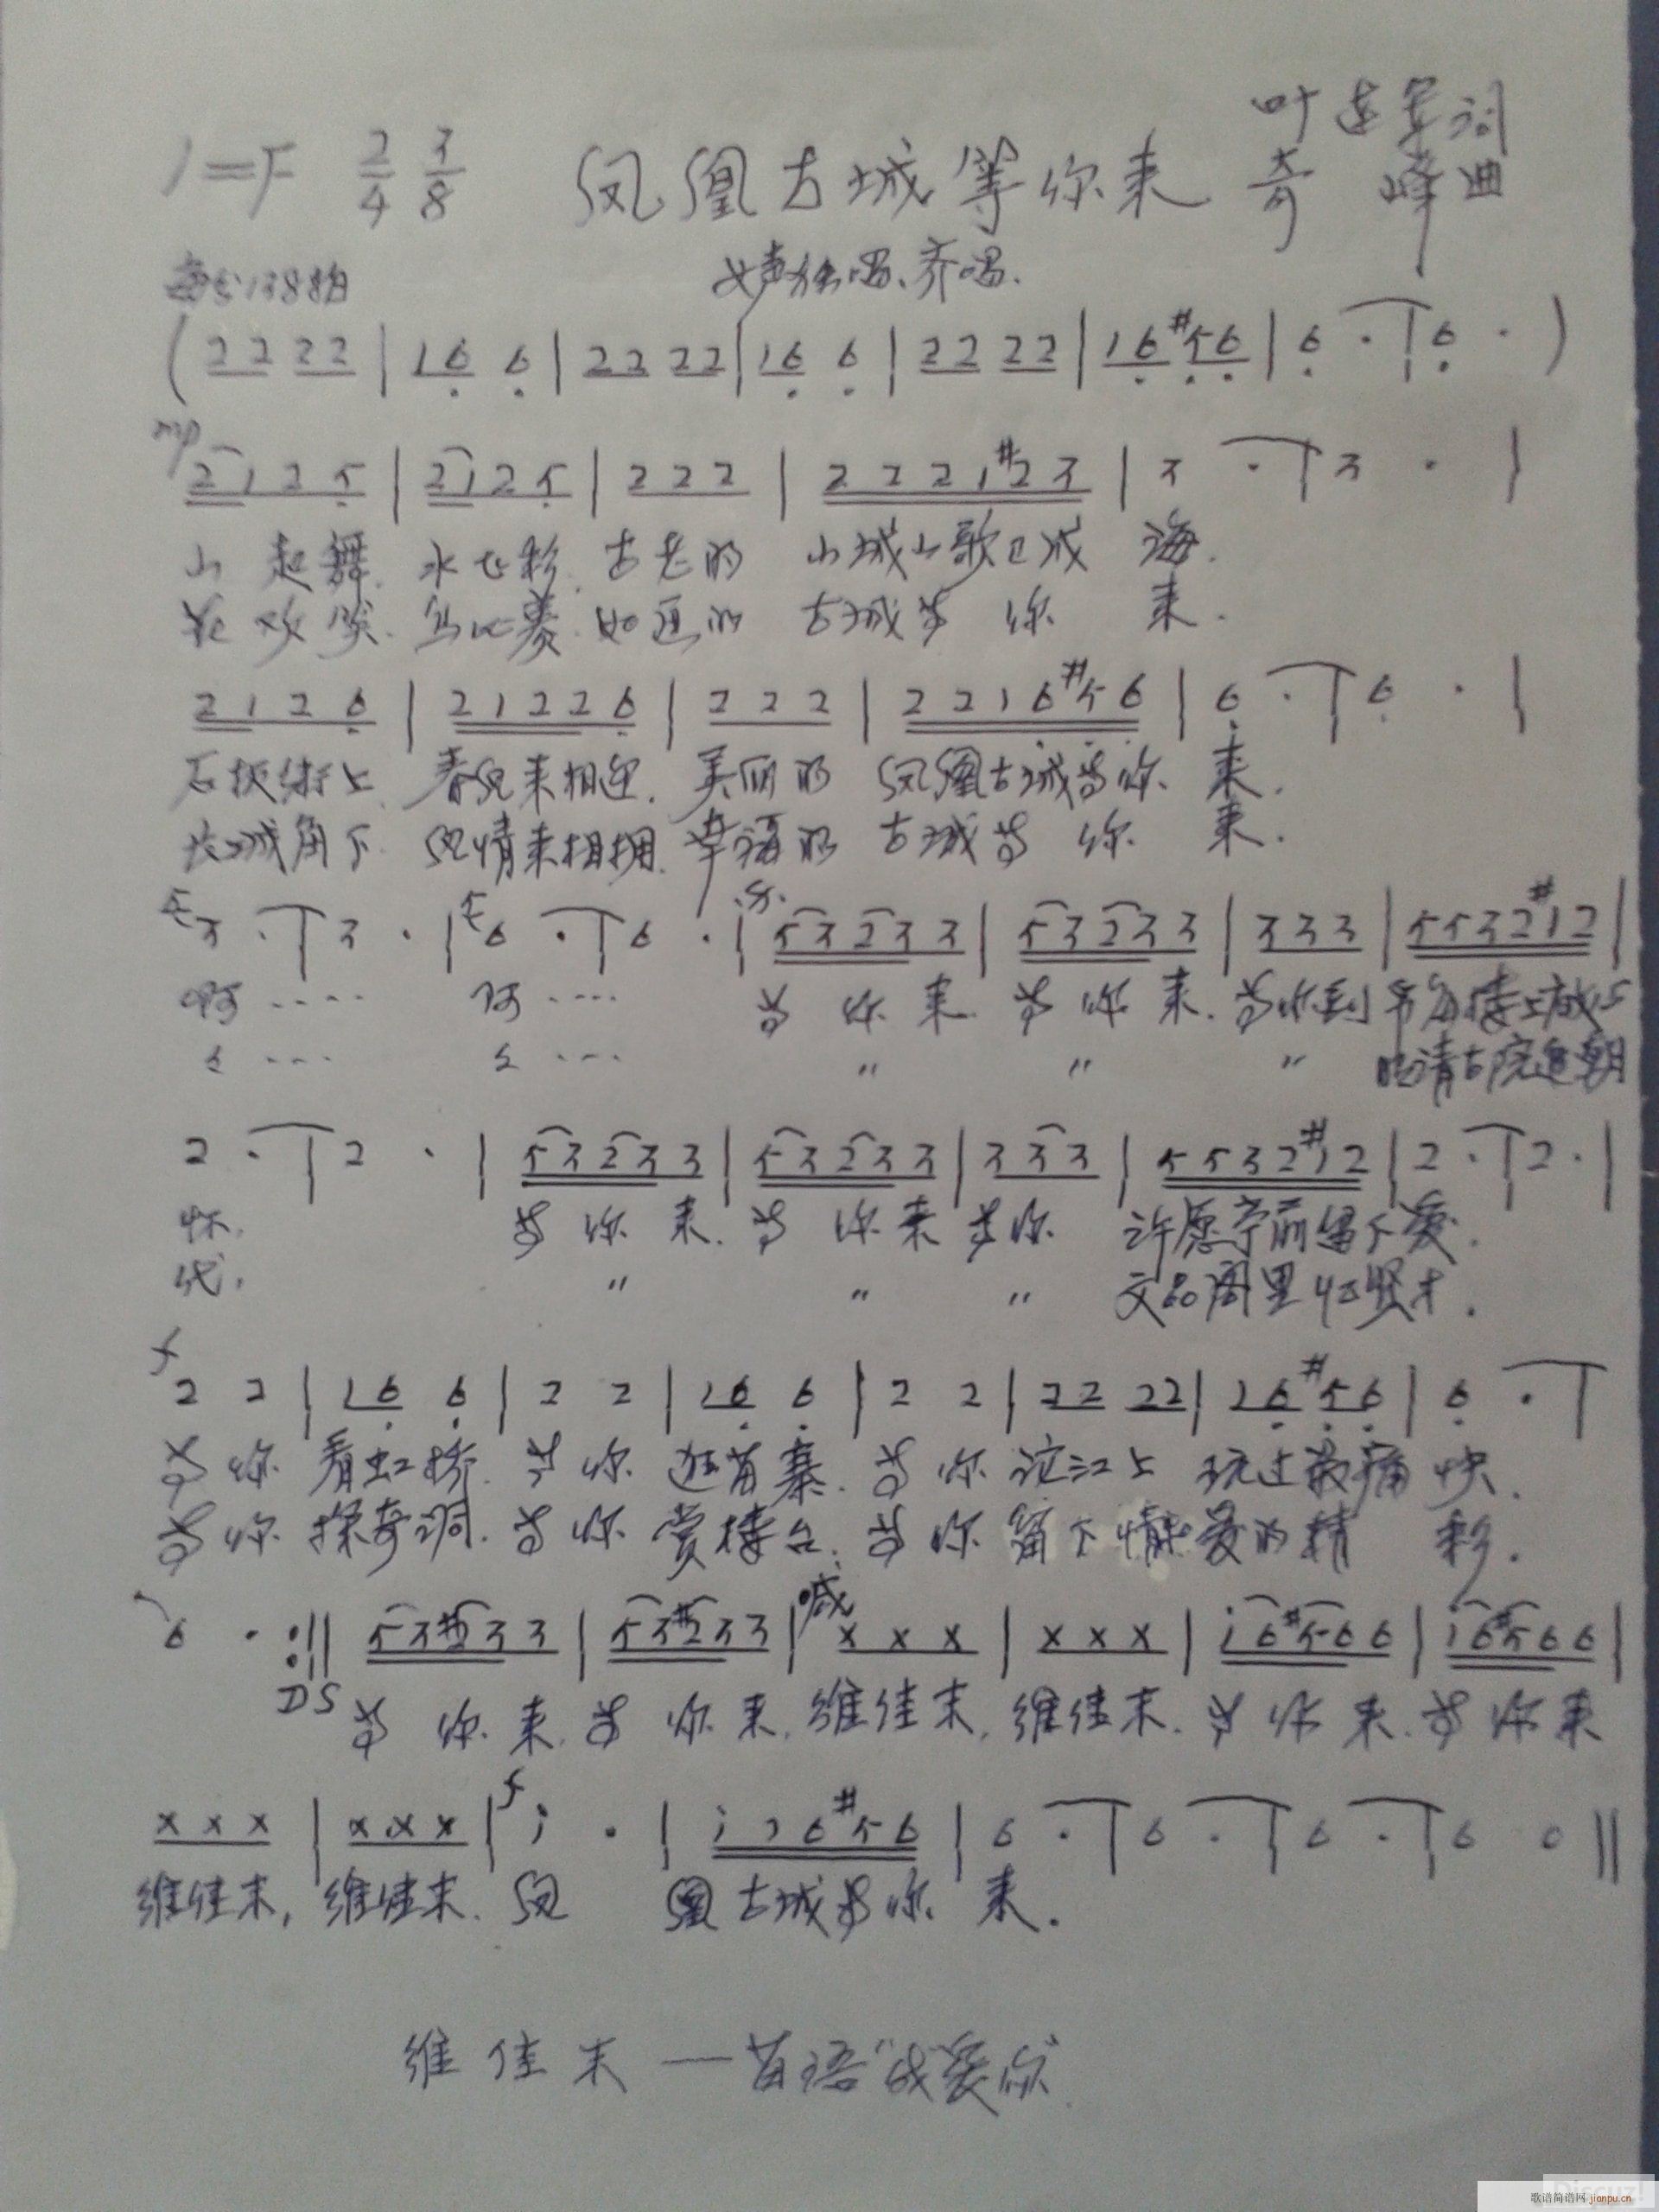 1=F 2/4 3/8 凤凰古城等你来 奇峰曲
女声独唱、齐唱.
(22 22 | 16 6 | 22 22 | 16 6 | 22 22 | 16 #56 | 6 · | 6 · )
mp
2125 | 2125 | 222 | 2221#23 | 3 · | 3 · |
山起舞. 水飞彩. 古老的 山城山歌已成海.
花欢笑. 如画的 古城等你来.
2126 | 21226 | 222 | 2216#56 | 6 · | 6 · |
石板街上 春风来相迎. 美丽的 凤凰古城等你来.
城角下 风情来相拥. 幸福的 古城等你来.
3 · | 3 · | 6 · | 6 · | 53233 | 53233 | 333 | 5532#12 |
啊···· 阿···· 等你来. 等你来. 等你到 楼上
···· ···· " " " 请古院
2 · | 2 · | 53233 | 53233 | 333 | 5532#12 | 2 · | 2 · |
怀. 等你来. 等你来 等你 许愿亭前留下爱.
代. " " " 文品阁里 贤才.
f
2 2 | 16 6 | 2 2 | 16 6 | 2 2 | 22 22 | 16 #56 | 6 · |
等你看虹桥. 等你逛苗寨. 等你沱江上 玩过最痛快.
等你探奇洞. 等你赏楼台. 等你留下情爱的精彩.
喊
6 · :|| 53#233 | 53#233 | x x x | x x x | i6#566 | i6#566 |
DS 等你来. 等你来. 维佳末, 维佳末. 等你来. 等你来
f
x x x | x x x | i · | i i 6#56 | 6 · | 6 · | 6 · | 6 0 ||
维佳末, 维佳末. 凤凰古城等你来.
维佳末——苗语"我爱你"
歌谱简谱网 jianpu.cn